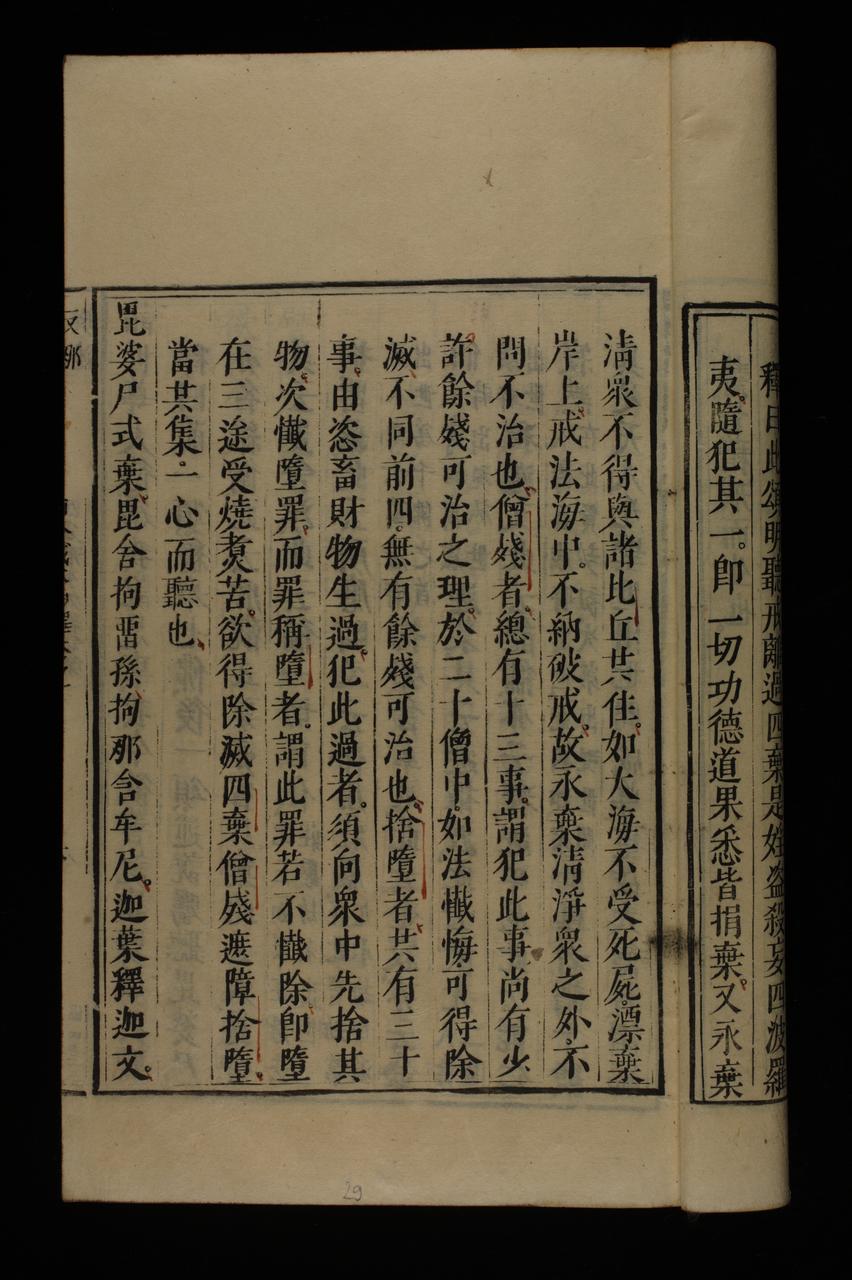 釋曰此頌明聽戒離過四棄是婬盜殺妄四波羅
夷。隨犯其一。卽一切功德道果悉皆捐棄。又永棄
淸衆不得與諸比丘共住。如大海不受死屍。漂棄
岸上。戒法海中。不納破戒。故永棄淸淨衆之外。不
問不治也。僧殘者。總有十三事。謂犯此事。尚有少
許餘殘可治之理。於二十僧中。如法懺悔。可得除
滅。不同前四。無有餘殘可治也。捨墮者。共有三十
事。由恣畜財物生過。犯此過者。須向衆中先捨其
物。次懺墮罪。而罪稱墮者。謂此罪若不懺除。卽墮
在三途受燒煑苦。欲得除滅四棄僧殘遮障捨墮。
當共集一心而聽也。
毘婆尸式棄。毘舍拘畱孫。拘那含牟尼。迦葉釋迦文。
29